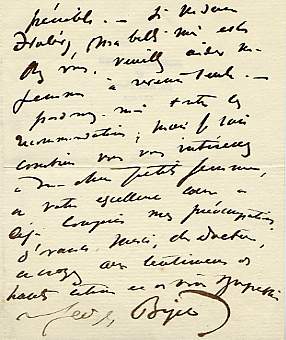 pénible. — Si Madame
Halévy, ma belle-mère est
chez vous, veuillez aider ma
femme à
pardonnez-moi toutes ces
recommandations, mais je sais
combien vous vous intéressez
à ma chère petite femme,
et votre excellent cœur a
déjà compris mes préoccupations.
D'avance merci, cher Docteur,
et croyez aux sentiments de
haute estime et de vive sympathie
de Georges Bizet